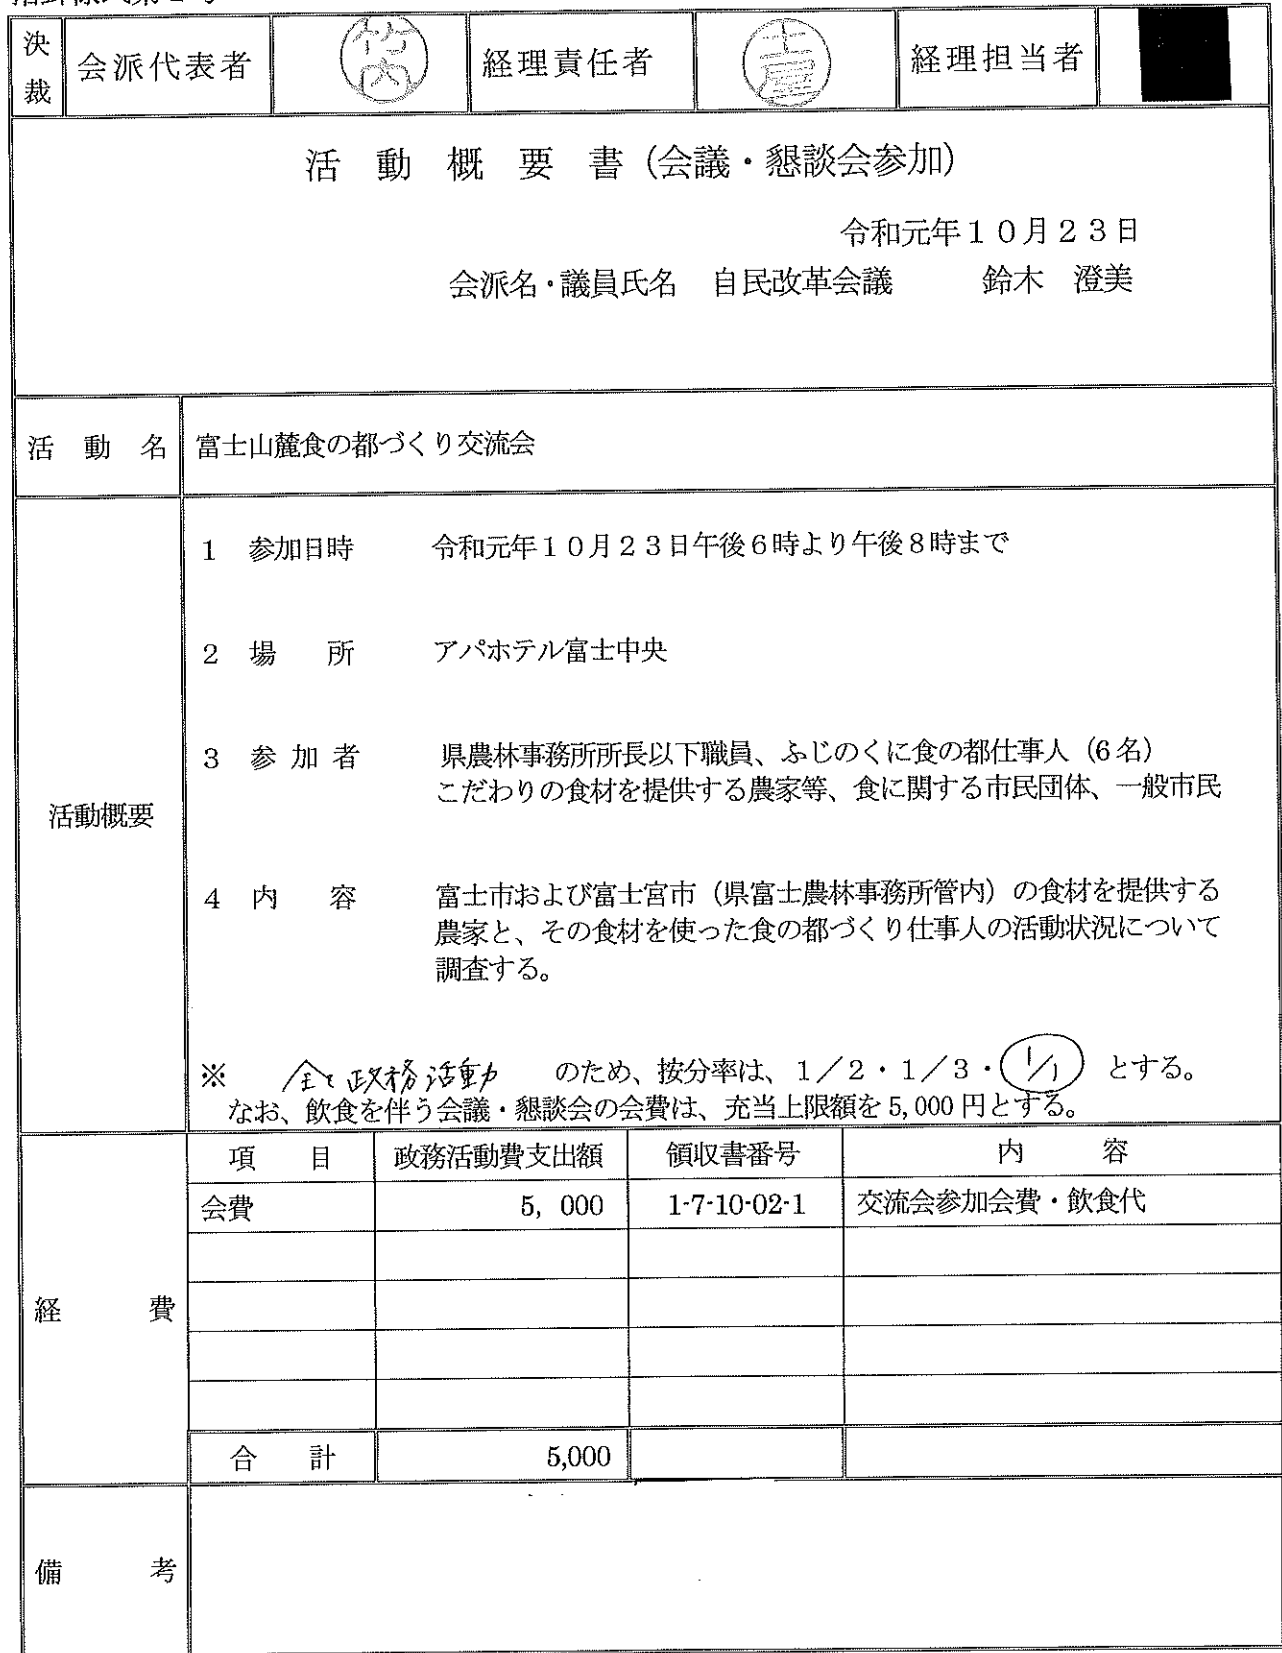 決裁 会派代表者 竹内 経理責任者 土屋 経理担当者
活動概要書（会議・懇談会参加）
令和元年１０月２３日
会派名・議員氏名 自民改革会議 鈴木 澄美
活動名 富士山麓食の都づくり交流会
活動概要
1 参加日時 令和元年１０月２３日午後６時より午後８時まで
2 場所 アパホテル富士中央
3 参加者 県農林事務所所長以下職員、ふじのくに食の都仕事人（6名）
こだわりの食材を提供する農家等、食に関する市民団体、一般市民
4 内容 富士市および富士宮市（県富士農林事務所管内）の食材を提供する
農家と、その食材を使った食の都づくり仕事人の活動状況について
調査する。
※ 全て政務活動 のため、按分率は、１／２・１／３・1/1 とする。
なお、飲食を伴う会議・懇談会の会費は、充当上限額を5,000円とする。
経費
項目 政務活動費支出額 領収書番号 内容
会費 5,000 1-7-10-02-1 交流会参加会費・飲食代
合計 5,000
備考